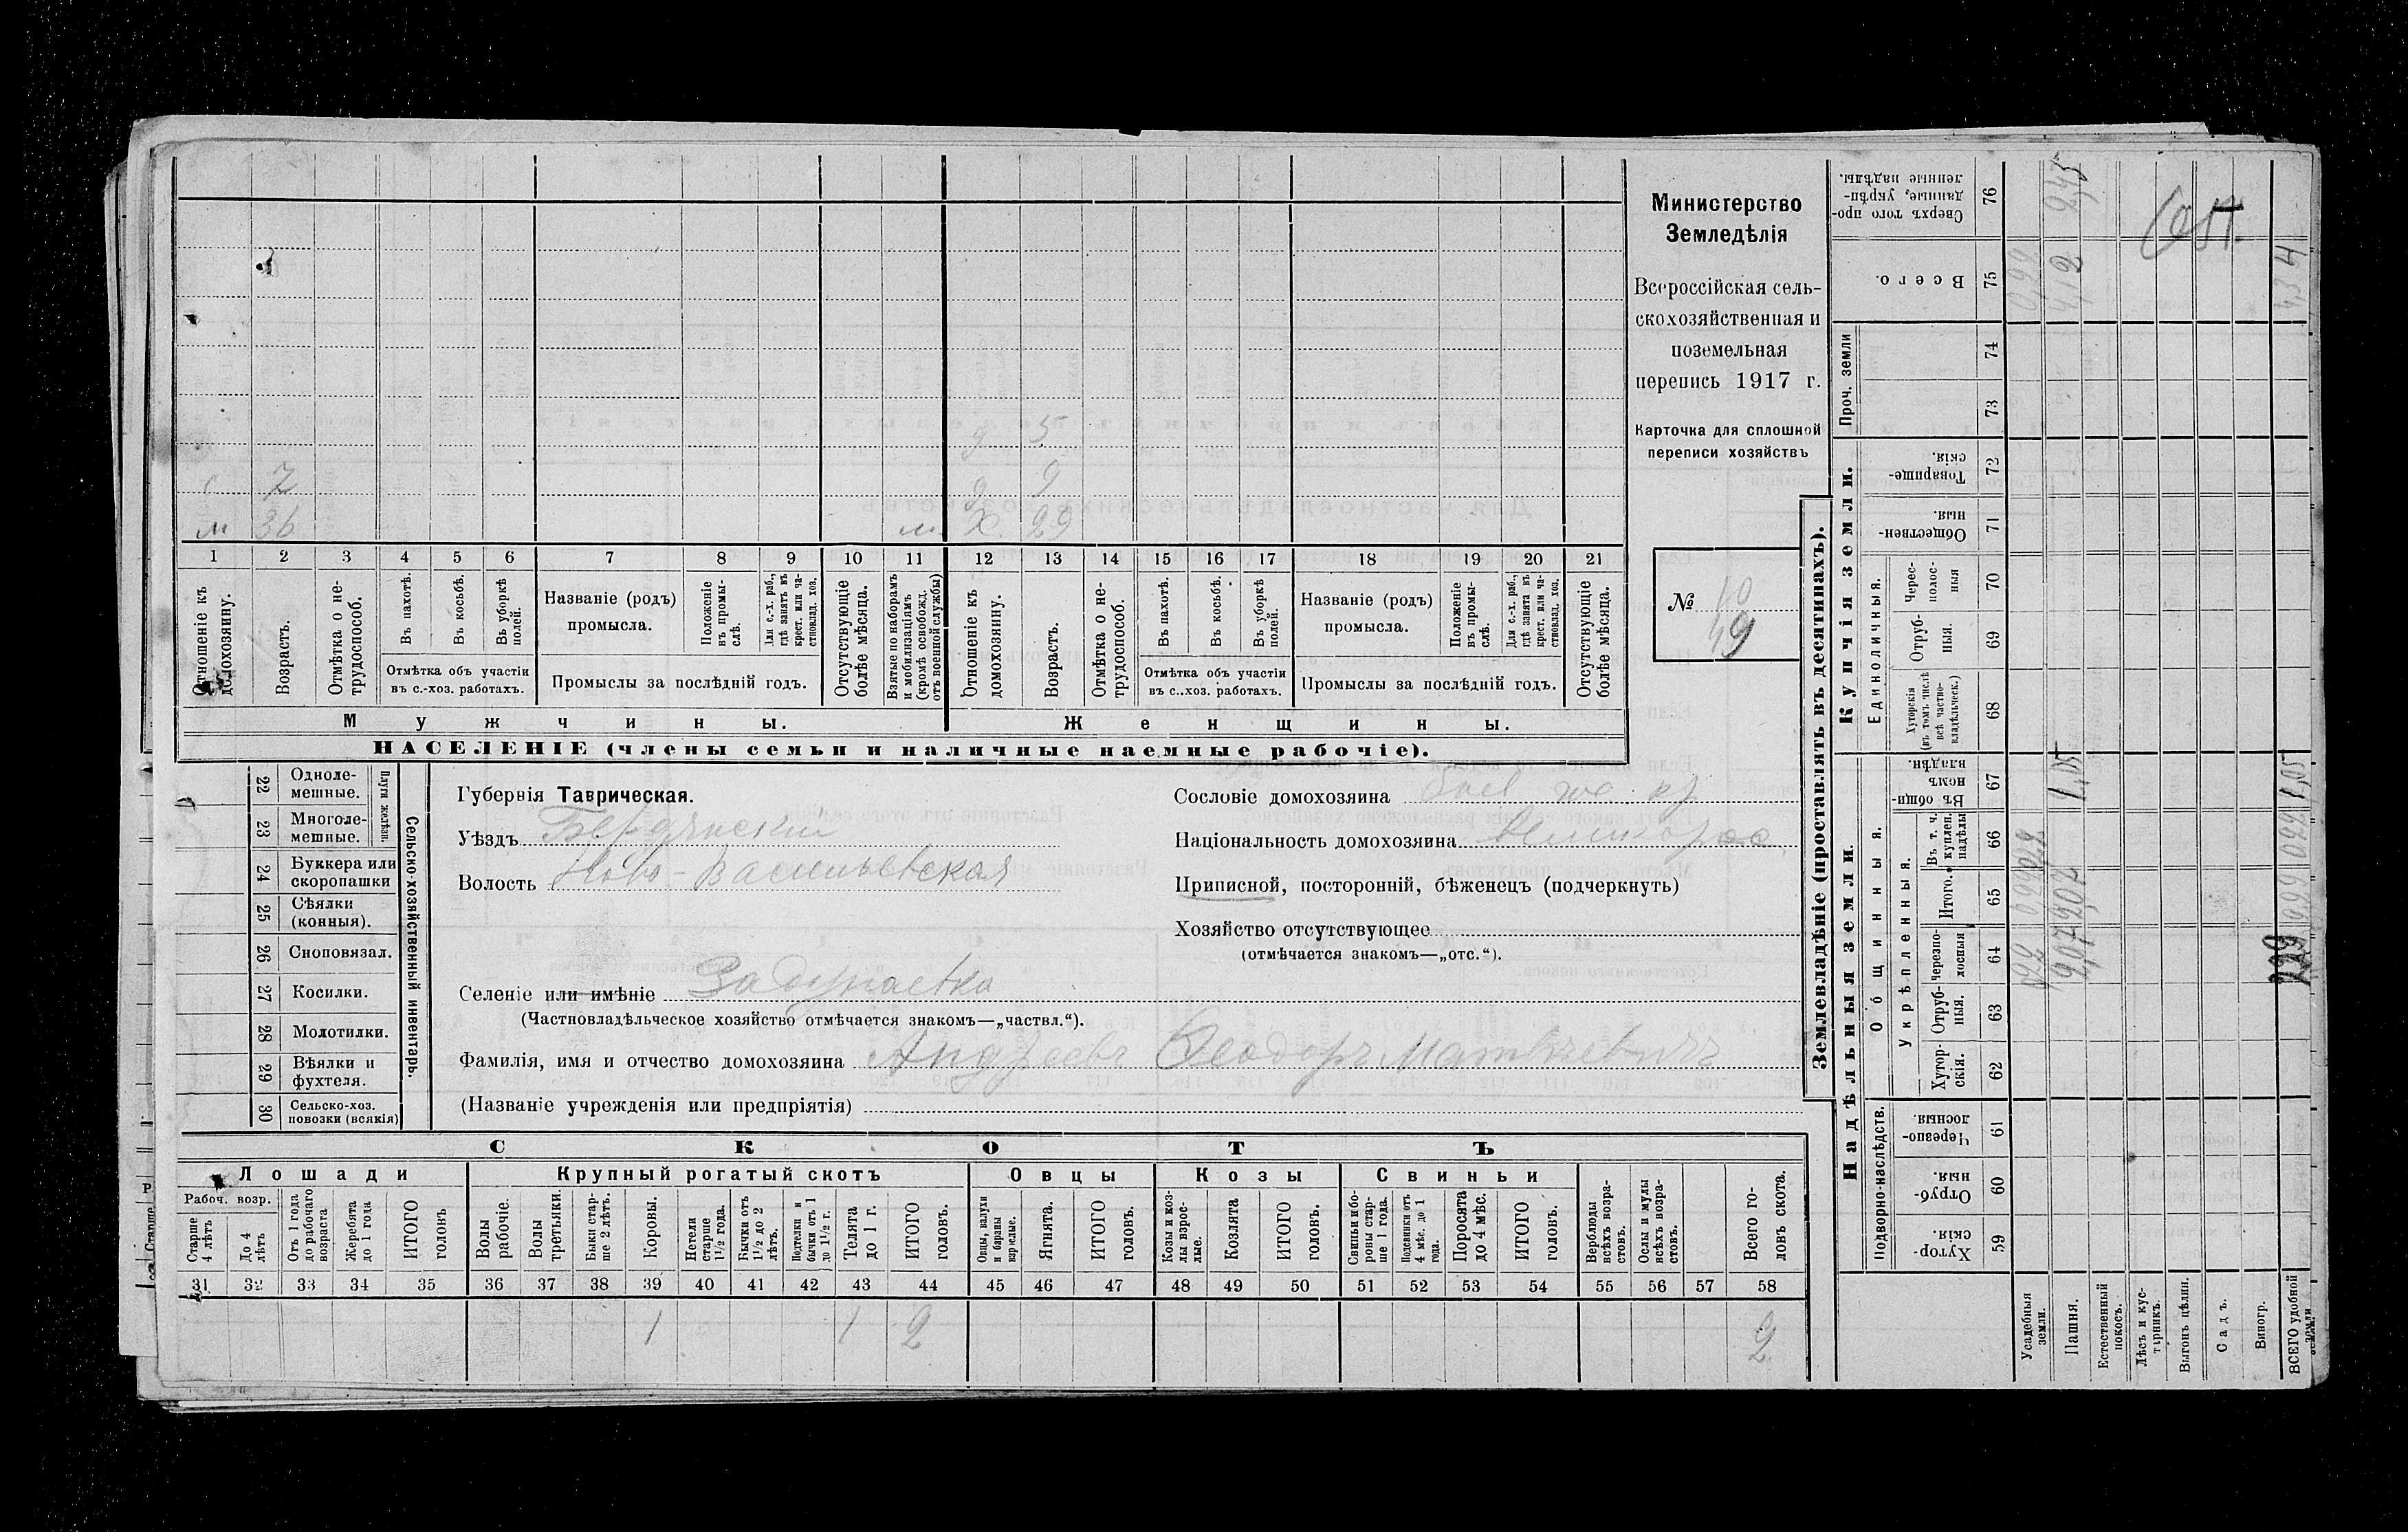 Министерство
Земледѣлія
Всероссійская сель-
скохозяйственная и
поземельная
перепись 1917 г.
Карточка для сплошной
переписи хозяйствъ
№ 10
49
5
7
9
м 36
м Ж 29
1 2 3 4 5 6 7 8 9 10 11 12 13 14 15 16 17 18 19 20 21
Отношеніе къ домохозяину.
Возрастъ.
Отмѣтка о не-
трудоспособ.
Въ пахотѣ.
Въ косьбѣ.
Въ уборкѣ полей.
Отмѣтка объ участіи
въ с.-хоз. работахъ.
Названіе (родъ)
промысла.
Положеніе въ промы-
слѣ.
Для с.-х. раб., гдѣ занятъ въ крест. или ча-
стновлад. хоз.
Промыслы за послѣдній годъ.
Отсутствующіе болѣе мѣсяца.
Взятые по наборамъ и мобилизаціямъ (кромѣ освобожд. отъ военной службы)
Отношеніе къ домохозяину.
Возрастъ.
Отмѣтка о не-
трудоспособ.
Въ пахотѣ.
Въ косьбѣ.
Въ уборкѣ полей.
Отмѣтка объ участіи
въ с.-хоз. работахъ.
Названіе (родъ)
промысла.
Положеніе въ промы-
слѣ.
Для с.-х. раб., гдѣ занята въ крест. или ча-
стновлад. хоз.
Промыслы за послѣдній годъ.
Отсутствующіе болѣе мѣсяца.
Мужчины.
Женщины.
НАСЕЛЕНІЕ (члены семьи и наличные наемные рабочіе).
Сельско-хозяйственный инвентарь.
Плуги желѣзн.
22 Одноле-
мешные.
23 Многоле-
мешные.
24 Буккера или
скоропашки
25 Сѣялки
(конныя).
26 Сноповязал.
27 Косилки.
28 Молотилки.
29 Вѣялки и
фухтеля.
30 Сельско-хоз.
повозки (всякія)
Губернія Таврическая.
Уѣздъ Бердянскій
Волость Ново-Васильевская
Сословіе домохозяина
Національность домохозяина Великорос.
Приписной, посторонній, бѣженецъ (подчеркнуть)
Хозяйство отсутствующее
(отмѣчается знакомъ—„отс.“).
Селеніе или имѣніе Задунаевка
(Частновладѣльческое хозяйство отмѣчается знакомъ—„частвл.“).
Фамилія, имя и отчество домохозяина Андреевъ Ѳеодоръ Матвѣевичъ
(Названіе учрежденія или предпріятія)
СКОТЪ
Лошади
Крупный рогатый скотъ
Овцы
Козы
Свиньи
Рабоч. возр.
Старше 4 лѣтъ
До 4 лѣтъ
Отъ 1 года до рабочаго возраста
Жеребята до 1 года
ИТОГО головъ
Волы рабочіе.
Волы третьяки.
Быки стар-
ше 2 лѣтъ.
Коровы.
Нетели старше 1½ года.
Бычки отъ 1½ до 2 лѣтъ.
Подтелки и бычки отъ 1 до 1½ г.
Телята до 1 г.
ИТОГО головъ.
Овцы, валухи и бараны взрослые.
Ягнята.
ИТОГО головъ.
Козы и коз-
лы взрос-
лые.
Козлята
ИТОГО головъ.
Свиньи и бо-
ровы стар-
ше 1 года.
Подсвинки отъ 4 мѣс. до 1 года.
Поросята до 4 мѣс.
ИТОГО головъ.
Верблюды всѣхъ возра-
стовъ.
Ослы и мулы всѣхъ возра-
стовъ.
Всего го-
ловъ скота.
31 32 33 34 35 36 37 38 39 40 41 42 43 44 45 46 47 48 49 50 51 52 53 54 55 56 57 58
1 1 2 2
Землевладѣніе (проставлять въ десятинахъ).
Надѣльныя земли.
Купчія земли.
Проч. земли
Подворно-наслѣдств.
Общинныя.
Укрѣпленныя.
Единоличныя.
59 Хутор-
скія.
60 Отруб-
ныя.
61 Черезпо-
лосныя
62 Хутор-
скія.
63 Отруб-
ныя.
64 Черезпо-
лосныя
65 Итого.
66 Въ т. ч. куплен. надѣлы
67 Въ общин-
номъ владѣн.
68 Хуторскія (въ томъ числѣ всѣ частно-
владѣльческ.)
69 Отруб-
ныя.
70 Черес-
полос-
ныя
71 Обществен-
ныя.
72 Товарище-
скія.
73
74
75 Всего.
76 Сверхъ того про-
данные, укрѣп-
ленные надѣлы.
Усадебныя земли.
Пашня. 2,07 2,07 4,12 2,45
Естественный покосъ.
Лѣсъ и кус-
тарникъ.
Выгонъ цѣлин.
Садъ.
Виногр.
ВСЕГО удобной земли 4,34